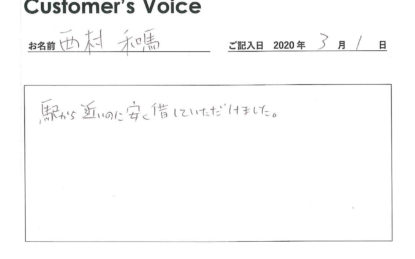 Customer's Voice
お名前 西村 和馬 ご記入日 2020年 3月 1日
駅から近いのに安く借していただけました。